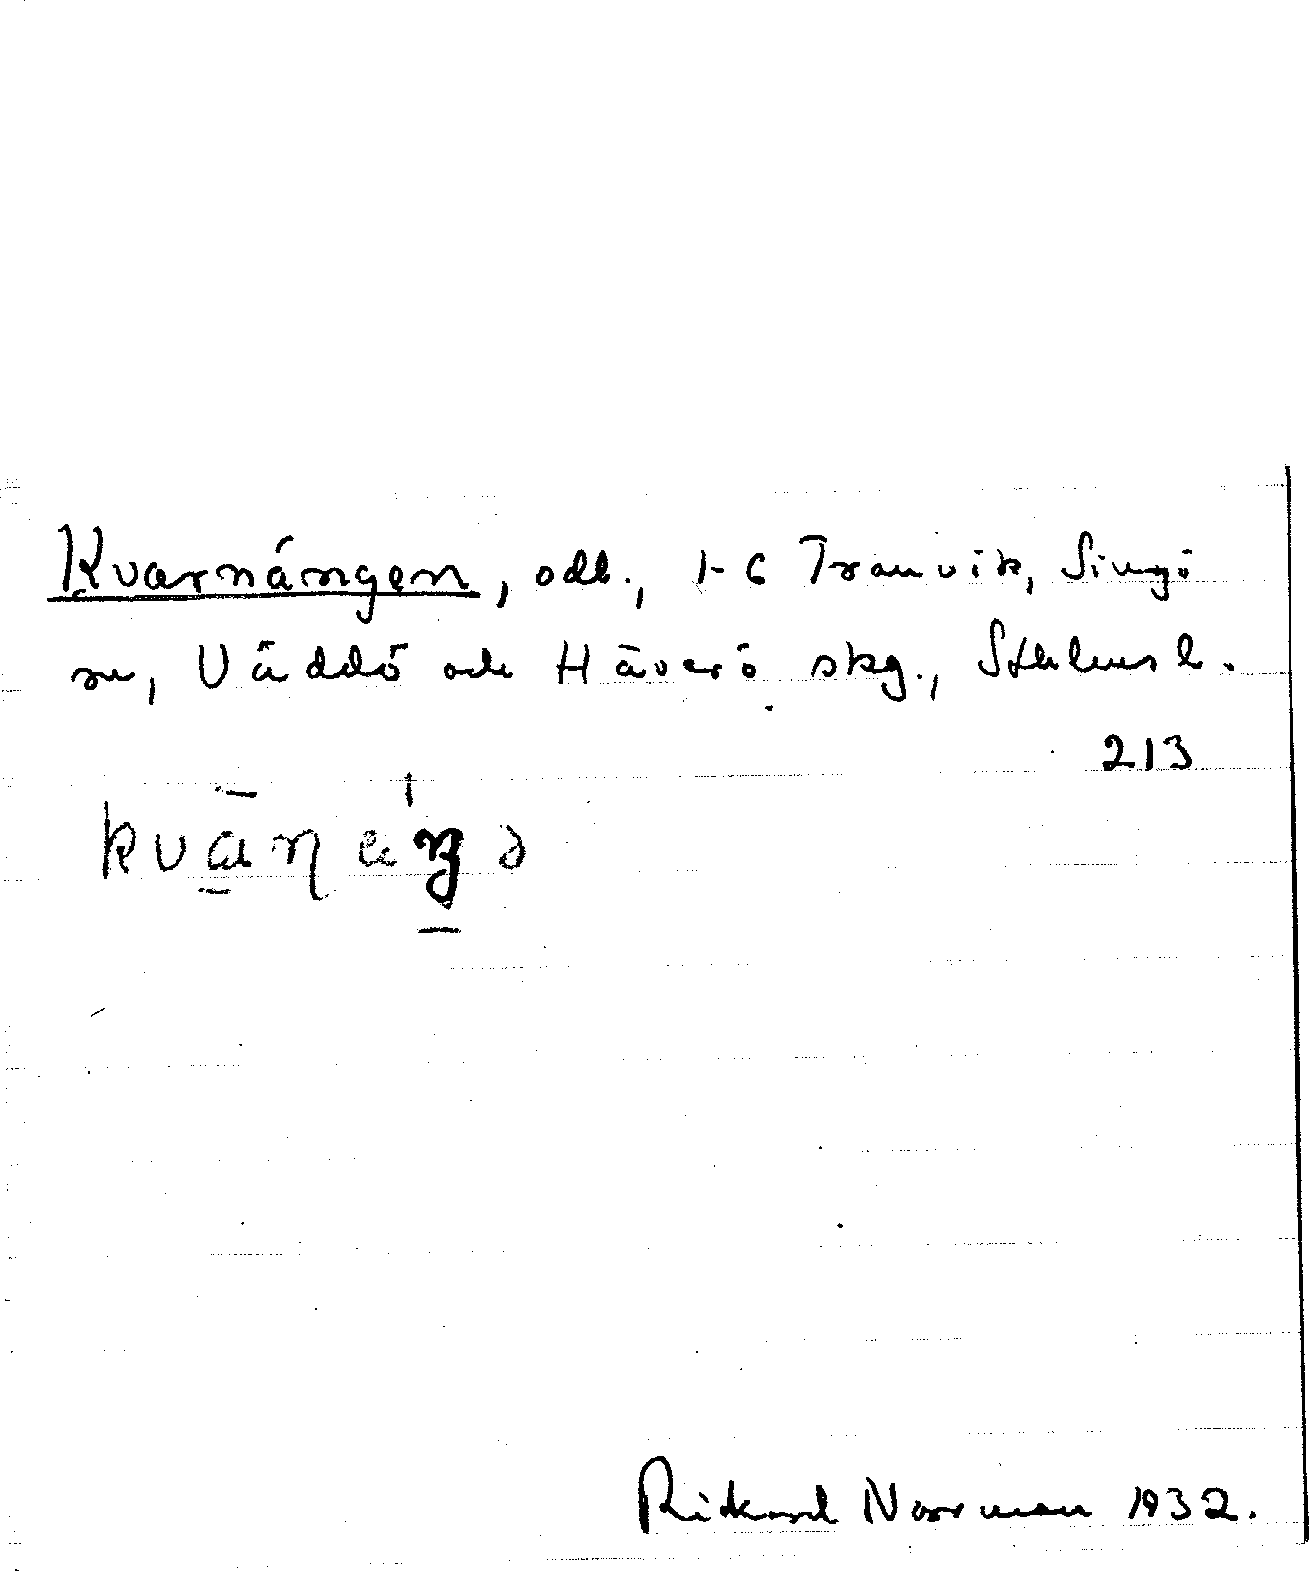 Kvarnängen, odl., 1-6 Tranvik, Singö
sn, Väddö och Häverö skg., Sthlms l.
213
Rickard Norrman 1932.